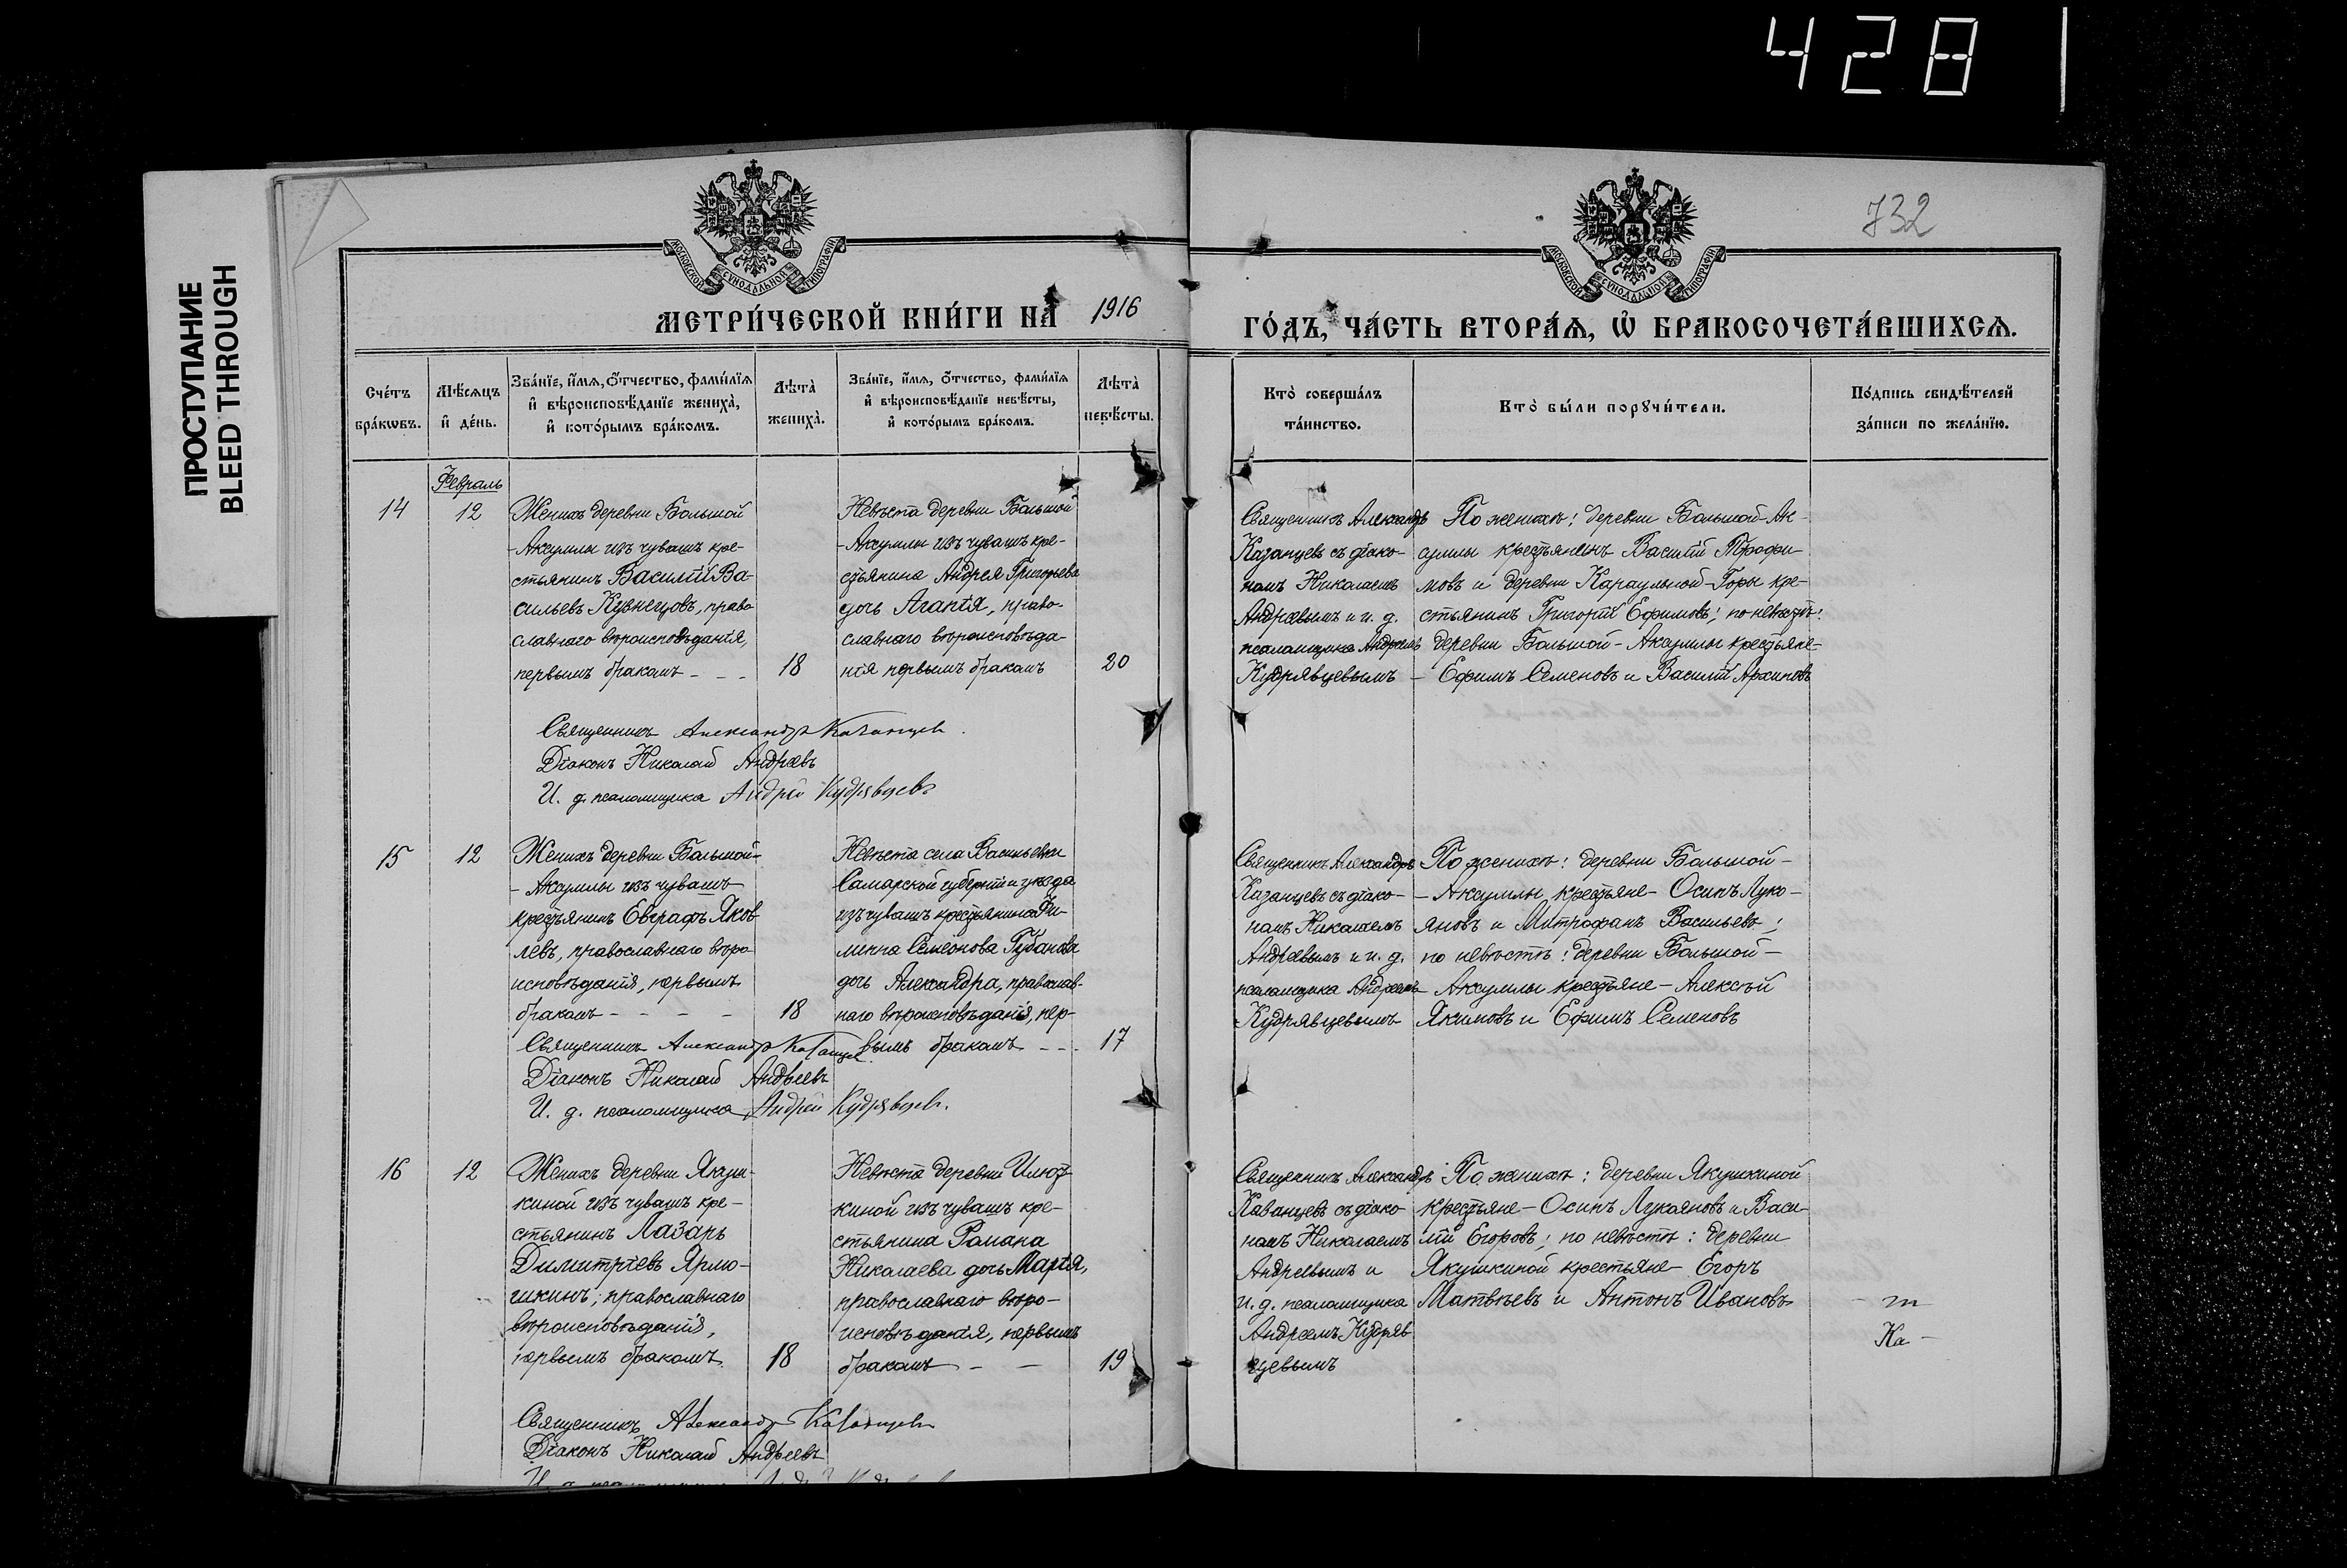 428
ПРОСТУПАНИЕ
BLEED THROUGH
732
МОСКОВСКОЙ СѴНОДАЛЬНОЙ ТИПОГРАФІИ
МОСКОВСКОЙ СѴНОДАЛЬНОЙ ТИПОГРАФІИ
МЕТРИ́ЧЕСКОЙ КНИ́ГИ НА̀ 1916
ГО́ДЪ, ЧА́СТЬ ВТОРА́Ѧ, Ѽ БРАКОСОЧЕТА́ВШИХСѦ.
Сче́тъ
бра́кѡвъ.
Мѣ́сяцъ
и҆ де́нь.
Зва́нїе, и҆́мѧ, ѻ҆́тчество, фами́лїѧ
и҆ вѣроисповѣ́данїе жениха̀,
и҆ кото́рымъ бра́комъ.
Лѣта̀
жениха̀.
Зва́нїе, и҆́мѧ, ѻ҆́тчество, фами́лїѧ
и҆ вѣроисповѣ́данїе невѣ́сты,
и҆ кото́рымъ бра́комъ.
Лѣта̀
невѣ́сты.
Кто̀ соверша́лъ
та́инство.
Кто̀ бы́ли порꙋчи́тели.
По́дпись свидѣ́телей
за́писи по жела́нїю.
Февраль
14
12
Женихъ деревни Большой
-Аксумлы изъ чувашъ кре-
стьянинъ Василій Ва-
сильевъ Кузнецовъ, право
славнаго вѣроисповѣданія,
первымъ бракомъ - - -
18
Невѣста деревни Большой
-Аксумлы изъ чувашъ кре-
стьянина Андрея Григорьева
дочь Агапія, право-
славнаго вѣроисповѣда-
нія первымъ бракомъ
20
Священникъ Александръ
Казанцевъ съ діако-
номъ Николаемъ
Андреевымъ и и. д.
псаломщика Андреемъ
Кудрявцевымъ -
По женихѣ: деревни Большой-Ак-
сумлы крестьянинъ Василій Трофи-
мовъ и деревни Караульной-Горы кре-
стьянинъ Григорій Ефимовъ; по невѣстѣ:
деревни Большой-Аксумлы крестьяне-
Ефимъ Семеновъ и Василій Архиповъ
Священникъ Александръ Казанцевъ.
Діаконъ Николай Андреевъ
И. д. псаломщика Андрей Кудрявцевъ
15
12
Женихъ деревни Большой-
-Аксумлы изъ чувашъ
крестьянинъ Евграфъ Яков
левъ, православнаго вѣро
исповѣданія, первымъ
бракомъ - - - -
18
Невѣста села Васильевки
Самарской губерніи и уѣзда
изъ чувашъ крестьянина Фи-
липпа Семеонова Губанова
дочь Александра, православ-
наго вѣроисповѣданія, пер-
вымъ бракомъ - - -
17
Священникъ Александръ
Казанцевъ съ діако-
номъ Николаемъ
Андреевымъ и и. д.
псаломщика Андреемъ
Кудрявцевымъ
По женихѣ: деревни Большой-
-Аксумлы крестьяне-Осипъ Луко-
яновъ и Митрофанъ Васильевъ;
по невѣстѣ: деревни Большой-
-Аксумлы крестьяне-Алексѣй
Якимовъ и Ефимъ Семеновъ
Священникъ Александръ Казанцевъ
Діаконъ Николай Андреевъ
И. д. псаломщика Андрей Кудрявцевъ.
16
12
Женихъ деревни Якуш-
киной изъ чувашъ кре-
стьянинъ Лазарь
Димитріевъ Ярмо-
шкинъ; православнаго
вѣроисповѣданія,
первымъ бракомъ.
18
киной изъ чувашъ кре-
стьянина Романа
Николаева дочь Марія,
православнаго вѣро-
исповѣданія, первымъ
бракомъ - -
19
Священникъ Александръ
Казанцевъ съ діако
номъ Николаемъ
Андреевымъ и
и. д. псаломщика
Андреемъ Кудряв
цевымъ
По женихѣ: деревни Якушкиной
крестьяне-Осипъ Лукояновъ и Васи-
лій Егоровъ; по невѣстѣ: деревни
Якушкиной крестьяне-Егоръ
Матвѣевъ и Антонъ Ивановъ
Ка-
Священникъ Александръ Казанцевъ
Діаконъ Николай Андреевъ